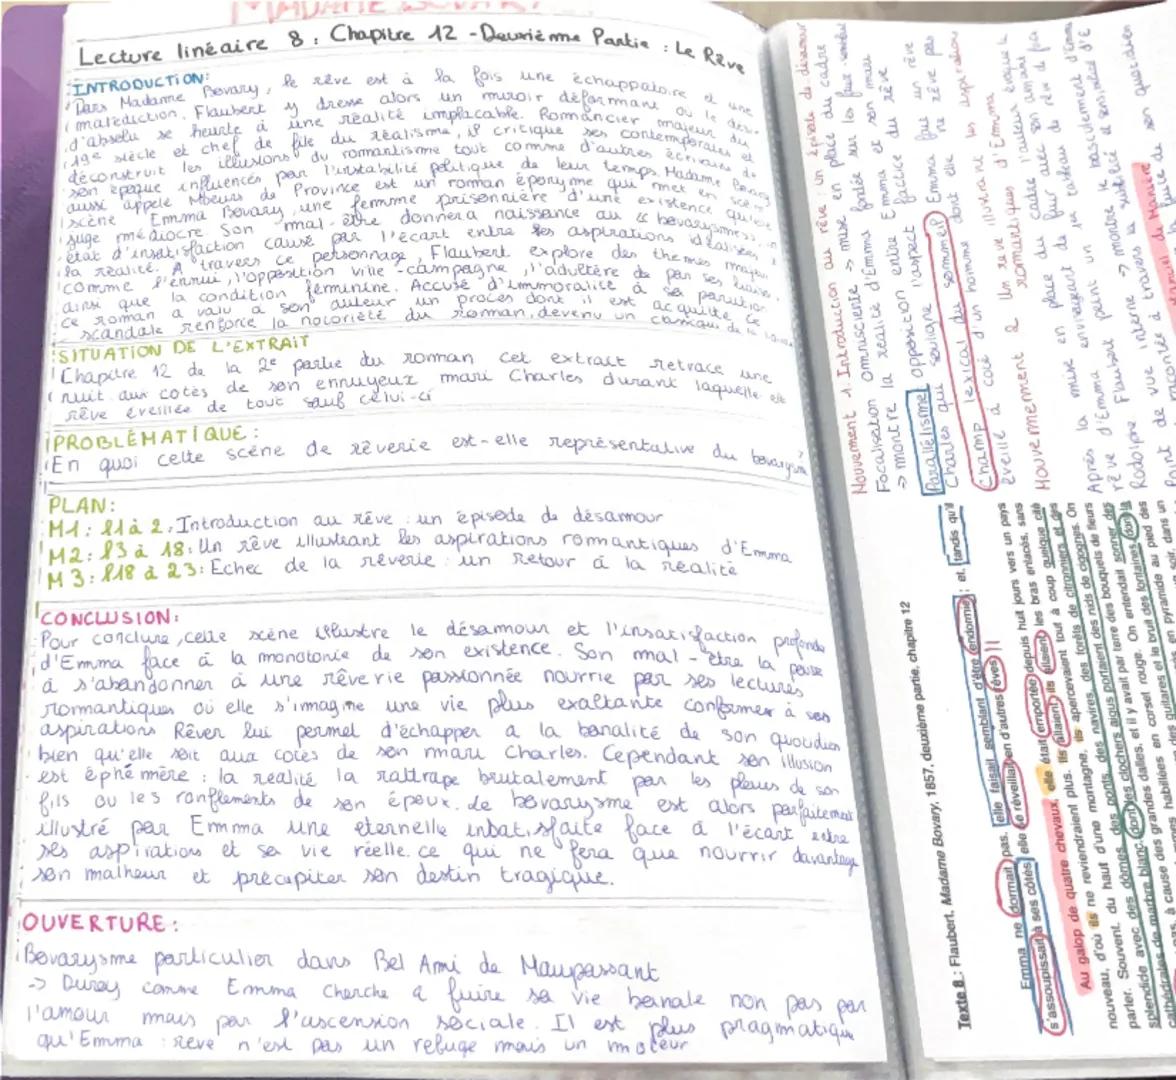 MADAME BOVARY
Lecture linéaire 8 : Chapitre 12 - Deuxième Partie : Le Rêve
INTRODUCTION :
Dans Madame Bovary, le rêve est à la fois une échappatoire et une
malédiction. Flaubert y dresse alors un miroir déformant où le dési-
d'absolu se heurte à une réalité implacable. Romancier majeur du
19e siècle et chef de file du réalisme, il critique ses contemporains et
déconstruit les illusions du romantisme tout comme d'autres écrivains de
son époque influencés par l'instabilité politique de leur temps. Madame Bovary
aussi appelé Moeurs de Province est un roman éponyme qui met en scène
scène Emma Bovary, une femme prisonnière d'une existence qu'elle
juge médiocre Son mal-être donnera naissance au "bovarysme", un
état d'insatisfaction causé par l'écart entre ses aspirations idéalisées &
la réalité. A travers ce personnage, Flaubert explore des thèmes majeurs
comme l'ennui, l'opposition ville-campagne, l'adultère de par ses liaisons,
ainsi que la condition féminine. Accusé d'immoralité à sa parution
ce roman a valu à son auteur un procès dont il est acquitté Ce
scandale renforce la notoriété du roman, devenu un classique de la
SITUATION DE L'EXTRAIT
Chapitre 12 de la 2e partie du roman cet extrait retrace une
nuit aux cotés de son ennuyeux mari Charles durant laquelle elle
rêve éveillée de tout sauf celui-ci
PROBLÉMATIQUE :
En quoi cette scène de rêverie est-elle représentative du bovarysme ?
PLAN :
M1 : l1 à 2. Introduction au rêve : un épisode de désamour
M2 : l3 à 18 : Un rêve illustrant les aspirations romantiques d'Emma
M3 : l18 à 23 : Echec de la rêverie : un retour à la réalité
CONCLUSION :
Pour conclure, cette scène illustre le désamour et l'insatisfaction profonde
d'Emma face à la monotonie de son existence. Son mal-être la pousse
à s'abandonner à une rêverie passionnée nourrie par ses lectures
romantiques où elle s'imagine une vie plus exaltante conforme à ses
aspirations Rêver lui permet d'échapper a la banalité de son quotidien
bien qu'elle soit aux cotés de son mari Charles. Cependant son illusion
est éphémère : la réalité la rattrape brutalement par les pleurs de son
fils ou les ronflements de son époux. Le bovarysme est alors parfaitement
illustré par Emma une éternelle insatisfaite face à l'écart entre
ses aspirations et sa vie réelle. ce qui ne fera que nourrir davantage
son malheur et précipiter son destin tragique.
OUVERTURE :
Bovarysme particulier dans Bel Ami de Maupassant
-> Duroy comme Emma cherche a fuire sa vie banale non pas par
l'amour mais par l'ascension sociale. Il est plus pragmatique
qu'Emma : reve n'est pas un refuge mais un moteur
Mouvement 1. Introduction au rêve un épisode de désamour
Focalisation omnisciente -> mise en place du cadre
-> montre la réalité d'Emma fondée sur les faux semblants
Parallélisme opposition entre Emma et son mari
Charles qui souligne l'aspect factice du rêve
Champ lexical du sommeil Emma fuis un rêve
éveillé à coté d'un homme dont elle ne rêve pas
MOUVEMENT 2 Un reve illustrant les aspirations
romantiques d'Emma
Après la mise en place du cadre l'auteur évoque le
rêve d'Emma envisageant de fuir avec son amant
Rodolphe Flaubert peint un 1er tableau de rêve
Point de vue interne -> montre le basculement d'Emma
Texte 8 : Flaubert, Madame Bovary, 1857, deuxième partie, chapitre 12
Emma ne dormait pas, elle faisait semblant d'être endormie ; et, tandis qu'il
s'assoupissait à ses côtés, elle se réveillait en d'autres rêves.
Au galop de quatre chevaux, elle était emportée depuis huit jours vers un pays
nouveau, d'où ils ne reviendraient plus. Ils allaient, ils allaient, les bras enlacés, sans
parler. Souvent, du haut d'une montagne, ils apercevaient tout à coup quelque cité
splendide avec des dômes, des ponts, des navires, des forêts de citronniers et des
cathédrales de marbre blanc, dont les clochers aigus portaient des nids de cigognes. On
à cause des grandes dalles, et il y avait par terre des bouquets de fleurs
habillées en corset rouge. On entendait sonner des
guitares et le bruit des fontaines, dont la
pyramide au pied des